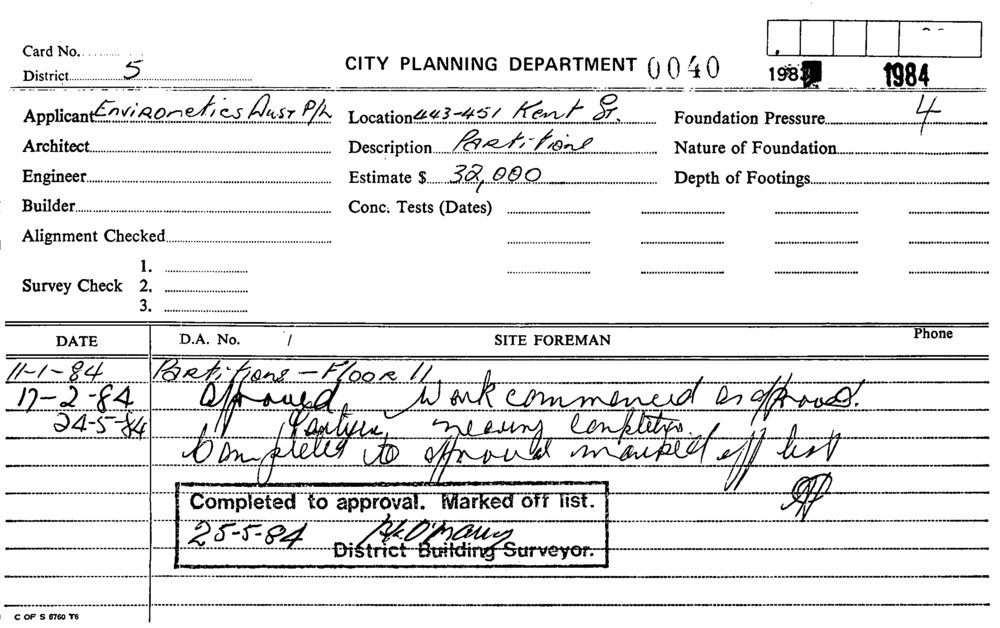 Card No.
District 5
CITY PLANNING DEPARTMENT 0040
1983 1984
Applicant Environetics Aust P/L Location 443-451 Kent St. Foundation Pressure 4
Architect Description Partitions Nature of Foundation
Engineer Estimate $ 32,000 Depth of Footings
Builder Conc. Tests (Dates)
Alignment Checked
1.
Survey Check 2.
3.
DATE D.A. No. / SITE FOREMAN Phone
11-1-84 Partitions - Floor 11
17-2-84 Approved. Work commenced as approved.
24-5-84 nearing completion.
Completed to approval marked off list
Completed to approval. Marked off list.
25-5-84
District Building Surveyor.
C OF S 6760 T6